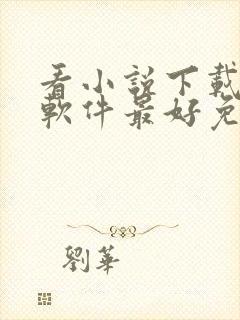 看小說下載
軟件最好免
劉華